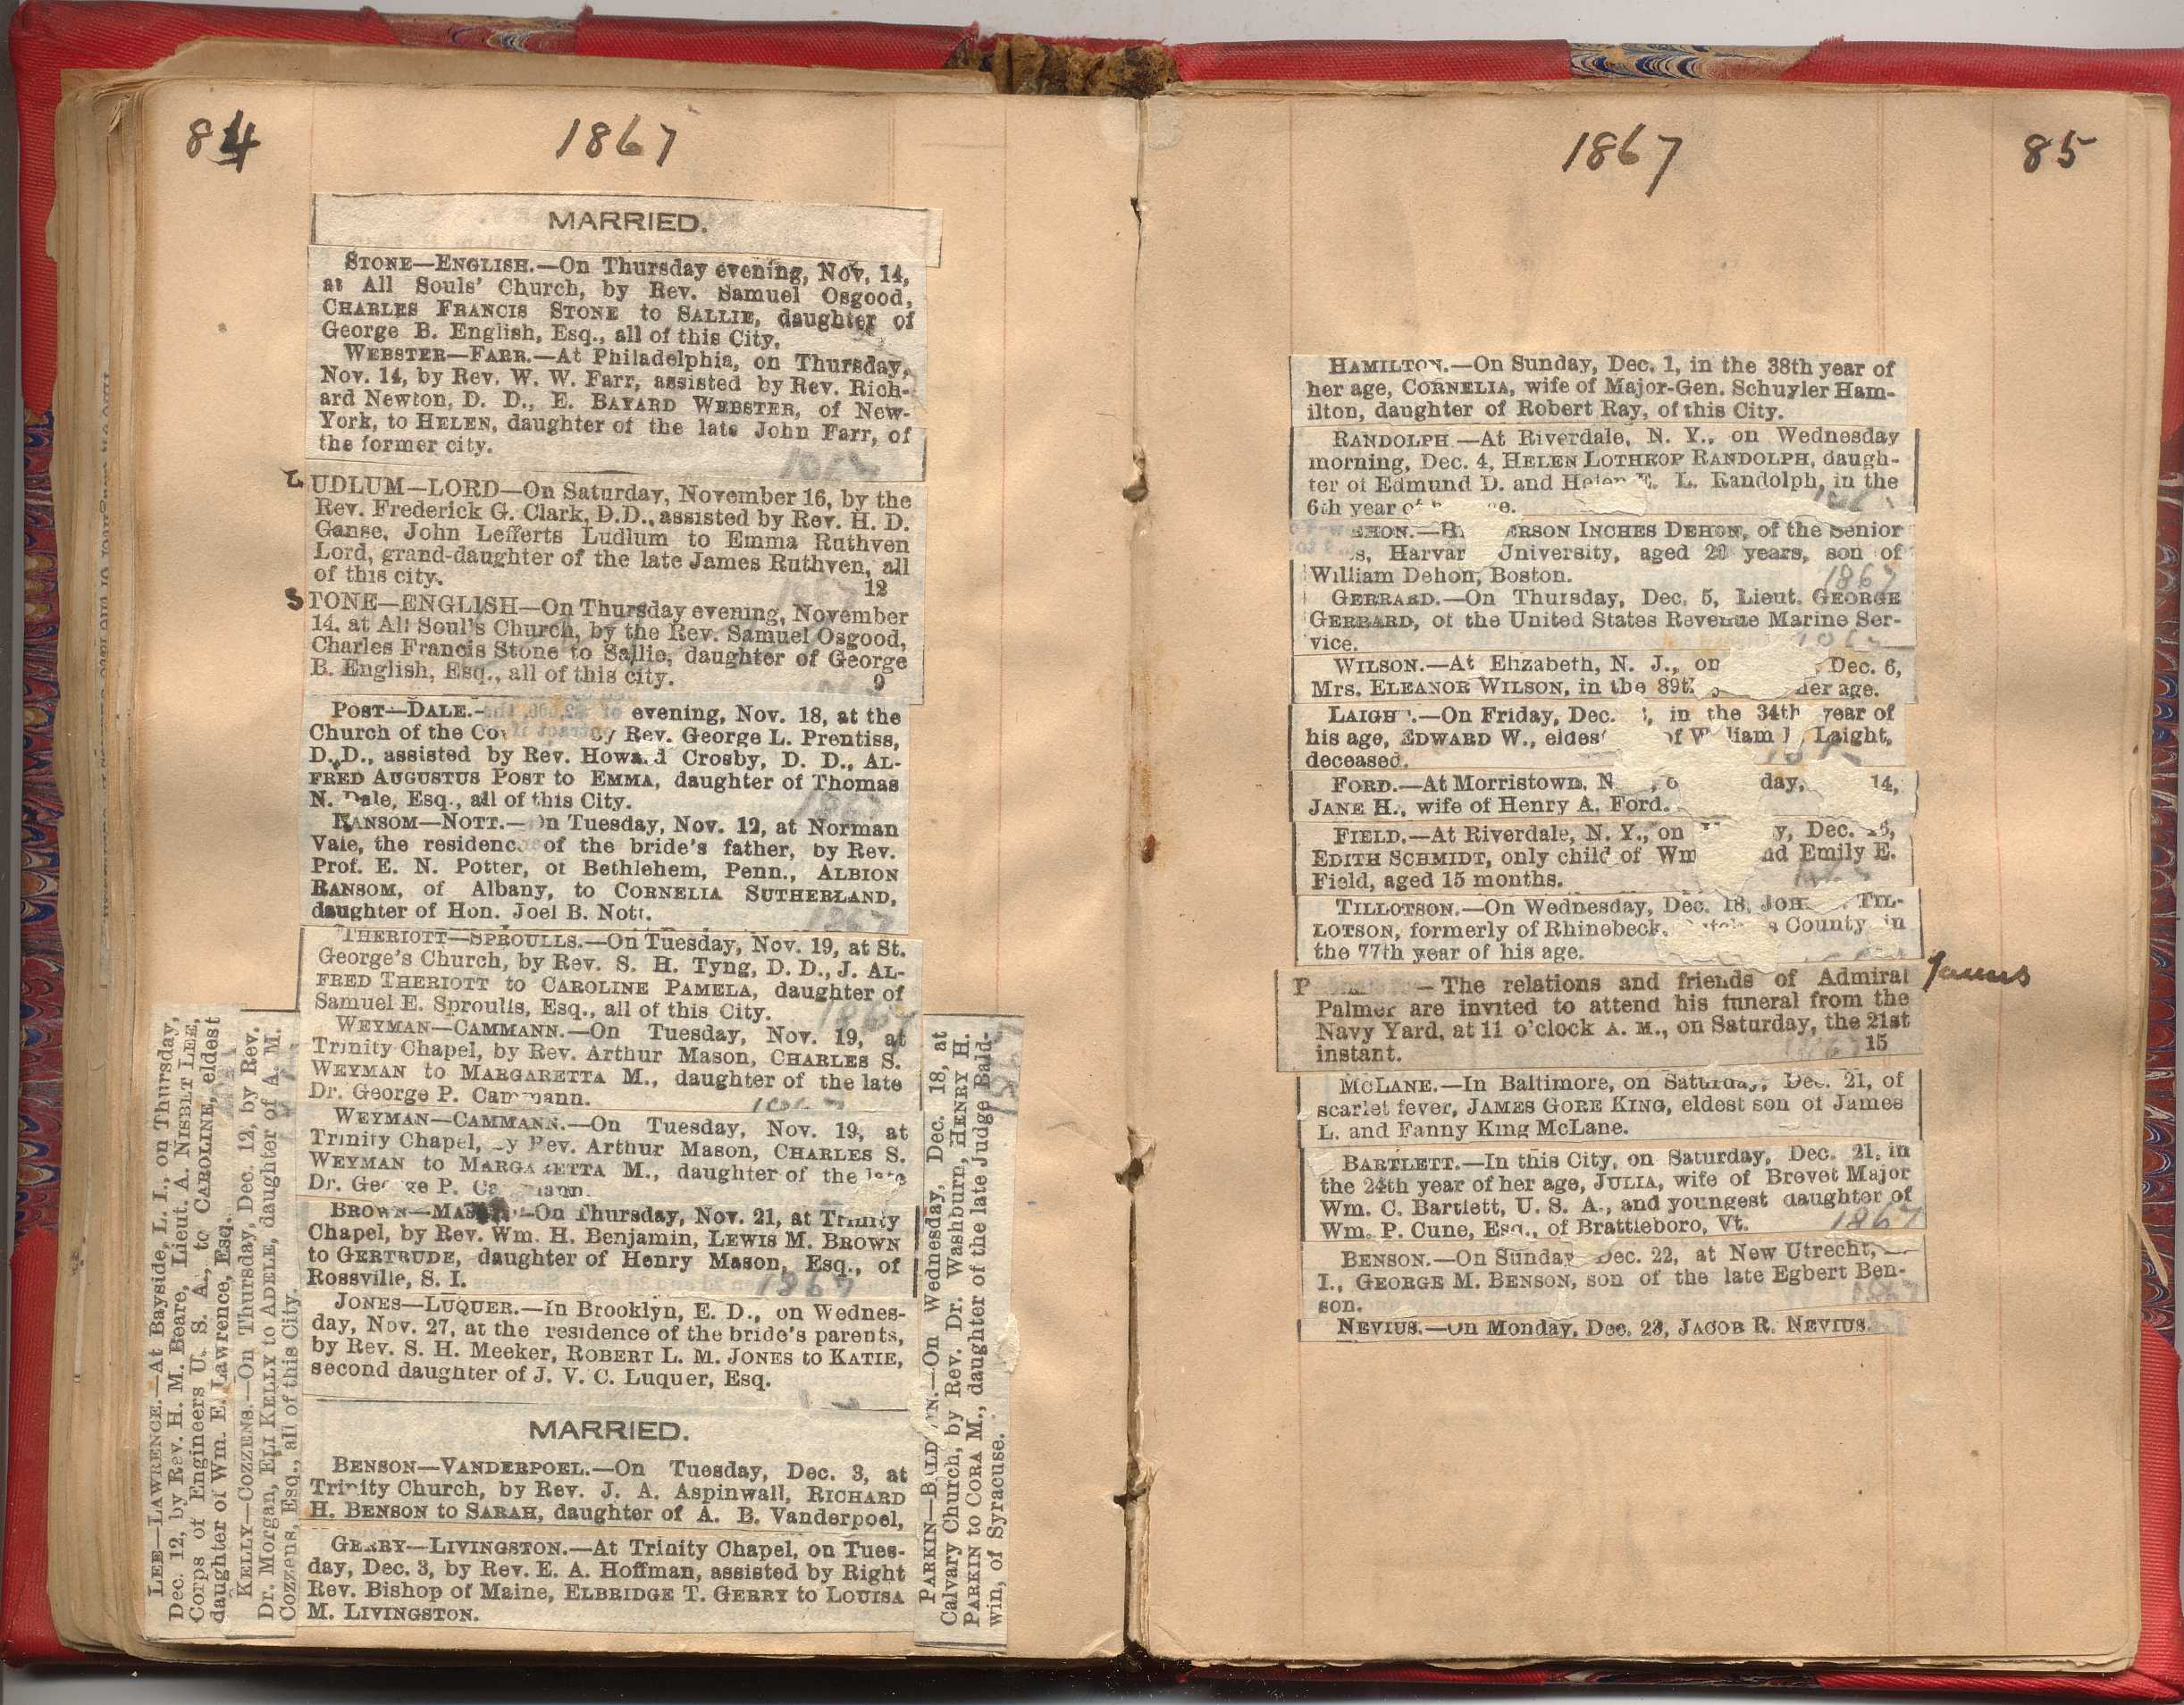 84
1867
MARRIED.
STONE—ENGLISH.—On Thursday evening, Nov. 14,
at All Souls' Church, by Rev. Samuel Osgood,
CHARLES FRANCIS STONE to SALLIE, daughter of
George B. English, Esq., all of this City.
WEBSTER—FARR.—At Philadelphia, on Thursday,
Nov. 14, by Rev. W. W. Farr, assisted by Rev. Rich-
ard Newton, D. D., E. BAYARD WEBSTER, of New-
York, to HELEN, daughter of the late John Farr, of
the former city.
1867
LUDLUM—LORD—On Saturday, November 16, by the
Rev. Frederick G. Clark, D.D., assisted by Rev. H. D.
Ganse, John Lefferts Ludlum to Emma Ruthven
Lord, grand-daughter of the late James Ruthven, all
of this city. 12
STONE—ENGLISH—On Thursday evening, November
14, at All Soul's Church, by the Rev. Samuel Osgood,
Charles Francis Stone to Sallie, daughter of George
B. English, Esq., all of this city. 9
POST—DALE.- evening, Nov. 18, at the
Church of the by Rev. George L. Prentiss,
D.D., assisted by Rev. Howard Crosby, D. D., AL-
FRED AUGUSTUS POST to EMMA, daughter of Thomas
N. Dale, Esq., all of this City.
1867
RANSOM—NOTT.—On Tuesday, Nov. 12, at Norman
Vale, the residence of the bride's father, by Rev.
Prof. E. N. Potter, of Bethlehem, Penn., ALBION
RANSOM, of Albany, to CORNELIA SUTHERLAND,
daughter of Hon. Joel B. Nott.
1867
THERIOTT—SPROULLS.—On Tuesday, Nov. 19, at St.
George's Church, by Rev. S. H. Tyng, D. D., J. AL-
FRED THERIOTT to CAROLINE PAMELA, daughter of
Samuel E. Sproulls, Esq., all of this City.
1867
WEYMAN—CAMMANN.—On Tuesday, Nov. 19, at
Trinity Chapel, by Rev. Arthur Mason, CHARLES S.
WEYMAN to MARGARETTA M., daughter of the late
Dr. George P. Cammann.
1867
WEYMAN—CAMMANN.—On Tuesday, Nov. 19, at
Trinity Chapel, by Rev. Arthur Mason, CHARLES S.
WEYMAN to MARGARETTA M., daughter of the late
Dr. George P. Cammann.
BROWN— —On Thursday, Nov. 21, at Trinity
Chapel, by Rev. Wm. H. Benjamin, LEWIS M. BROWN
to GERTRUDE, daughter of Henry Mason, Esq., of
Rossville, S. I. 1867
JONES—LUQUER.—In Brooklyn, E. D., on Wednes-
day, Nov. 27, at the residence of the bride's parents,
by Rev. S. H. Meeker, ROBERT L. M. JONES to KATIE,
second daughter of J. V. C. Luquer, Esq.
MARRIED.
BENSON—VANDERPOEL.—On Tuesday, Dec. 3, at
Trinity Church, by Rev. J. A. Aspinwall, RICHARD
H. BENSON to SARAH, daughter of A. B. Vanderpoel,
GERRY—LIVINGSTON.—At Trinity Chapel, on Tues-
day, Dec. 3, by Rev. E. A. Hoffman, assisted by Right
Rev. Bishop of Maine, ELBRIDGE T. GERRY to LOUISA
M. LIVINGSTON.
LEE—LAWRENCE.—At Bayside, L. I., on Thursday,
Dec. 12, by Rev. H. M. Beare, Lieut. A. NISBET LEE,
Corps of Engineers U. S. A., to CAROLINE, eldest
daughter of Wm. E. Lawrence, Esq.
KELLY—COZZENS.—On Thursday, Dec. 12, by Rev.
Dr. Morgan, ELI KELLY to ADELE, daughter of A. M.
Cozzens, Esq., all of this City.
PARKIN—BALDWIN.—On Wednesday, Dec. 18, at
Calvary Church, by Rev. Dr. Washburn, HENRY H.
PARKIN to CORA M., daughter of the late Judge Bald-
win, of Syracuse.
1867
85
HAMILTON.—On Sunday, Dec. 1, in the 38th year of
her age, CORNELIA, wife of Major-Gen. Schuyler Ham-
ilton, daughter of Robert Ray, of this City.
RANDOLPH.—At Riverdale, N. Y., on Wednesday
morning, Dec. 4, HELEN LOTHROP RANDOLPH, daugh-
ter of Edmund D. and Helen E. L. Randolph, in the
6th year of
DEHON.— INCHES DEHON, of the Senior
Harvard University, aged 20 years, son of
William Dehon, Boston. 1867
GERRARD.—On Thursday, Dec. 5, Lieut. GEORGE
GERRARD, of the United States Revenue Marine Ser-
vice. 1867
WILSON.—At Elizabeth, N. J., on Dec. 6,
Mrs. ELEANOR WILSON, in the 89th her age.
LAIGHT.—On Friday, Dec. in the 34th year of
his age, EDWARD W., eldest of William Laight,
deceased.
FORD.—At Morristown, 14,
JANE H., wife of Henry A. Ford.
FIELD.—At Riverdale, N. Y., on Dec.
EDITH SCHMIDT, only child of Wm and Emily E.
Field, aged 15 months. 1867
TILLOTSON.—On Wednesday, Dec. 18, TIL-
LOTSON, formerly of Rhinebeck, County in
the 77th year of his age.
P — The relations and friends of Admiral
James
Palmer are invited to attend his funeral from the
Navy Yard, at 11 o'clock A. M., on Saturday, the 21st
instant. 1867 15
MCLANE.—In Baltimore, on Saturday, Dec. 21, of
scarlet fever, JAMES GORE KING, eldest son of James
L. and Fanny King McLane.
BARTLETT.—In this City, on Saturday, Dec. 21, in
the 24th year of her age, JULIA, wife of Brevet Major
Wm. C. Bartlett, U. S. A., and youngest daughter of
Wm. P. Cune, Esq., of Brattleboro, Vt. 1867
BENSON.—On Sunday Dec. 22, at New Utrecht,
I., GEORGE M. BENSON, son of the late Egbert Ben-
son. 1867
NEVIUS.—On Monday, Dec. 23, JACOB R. NEVIUS.